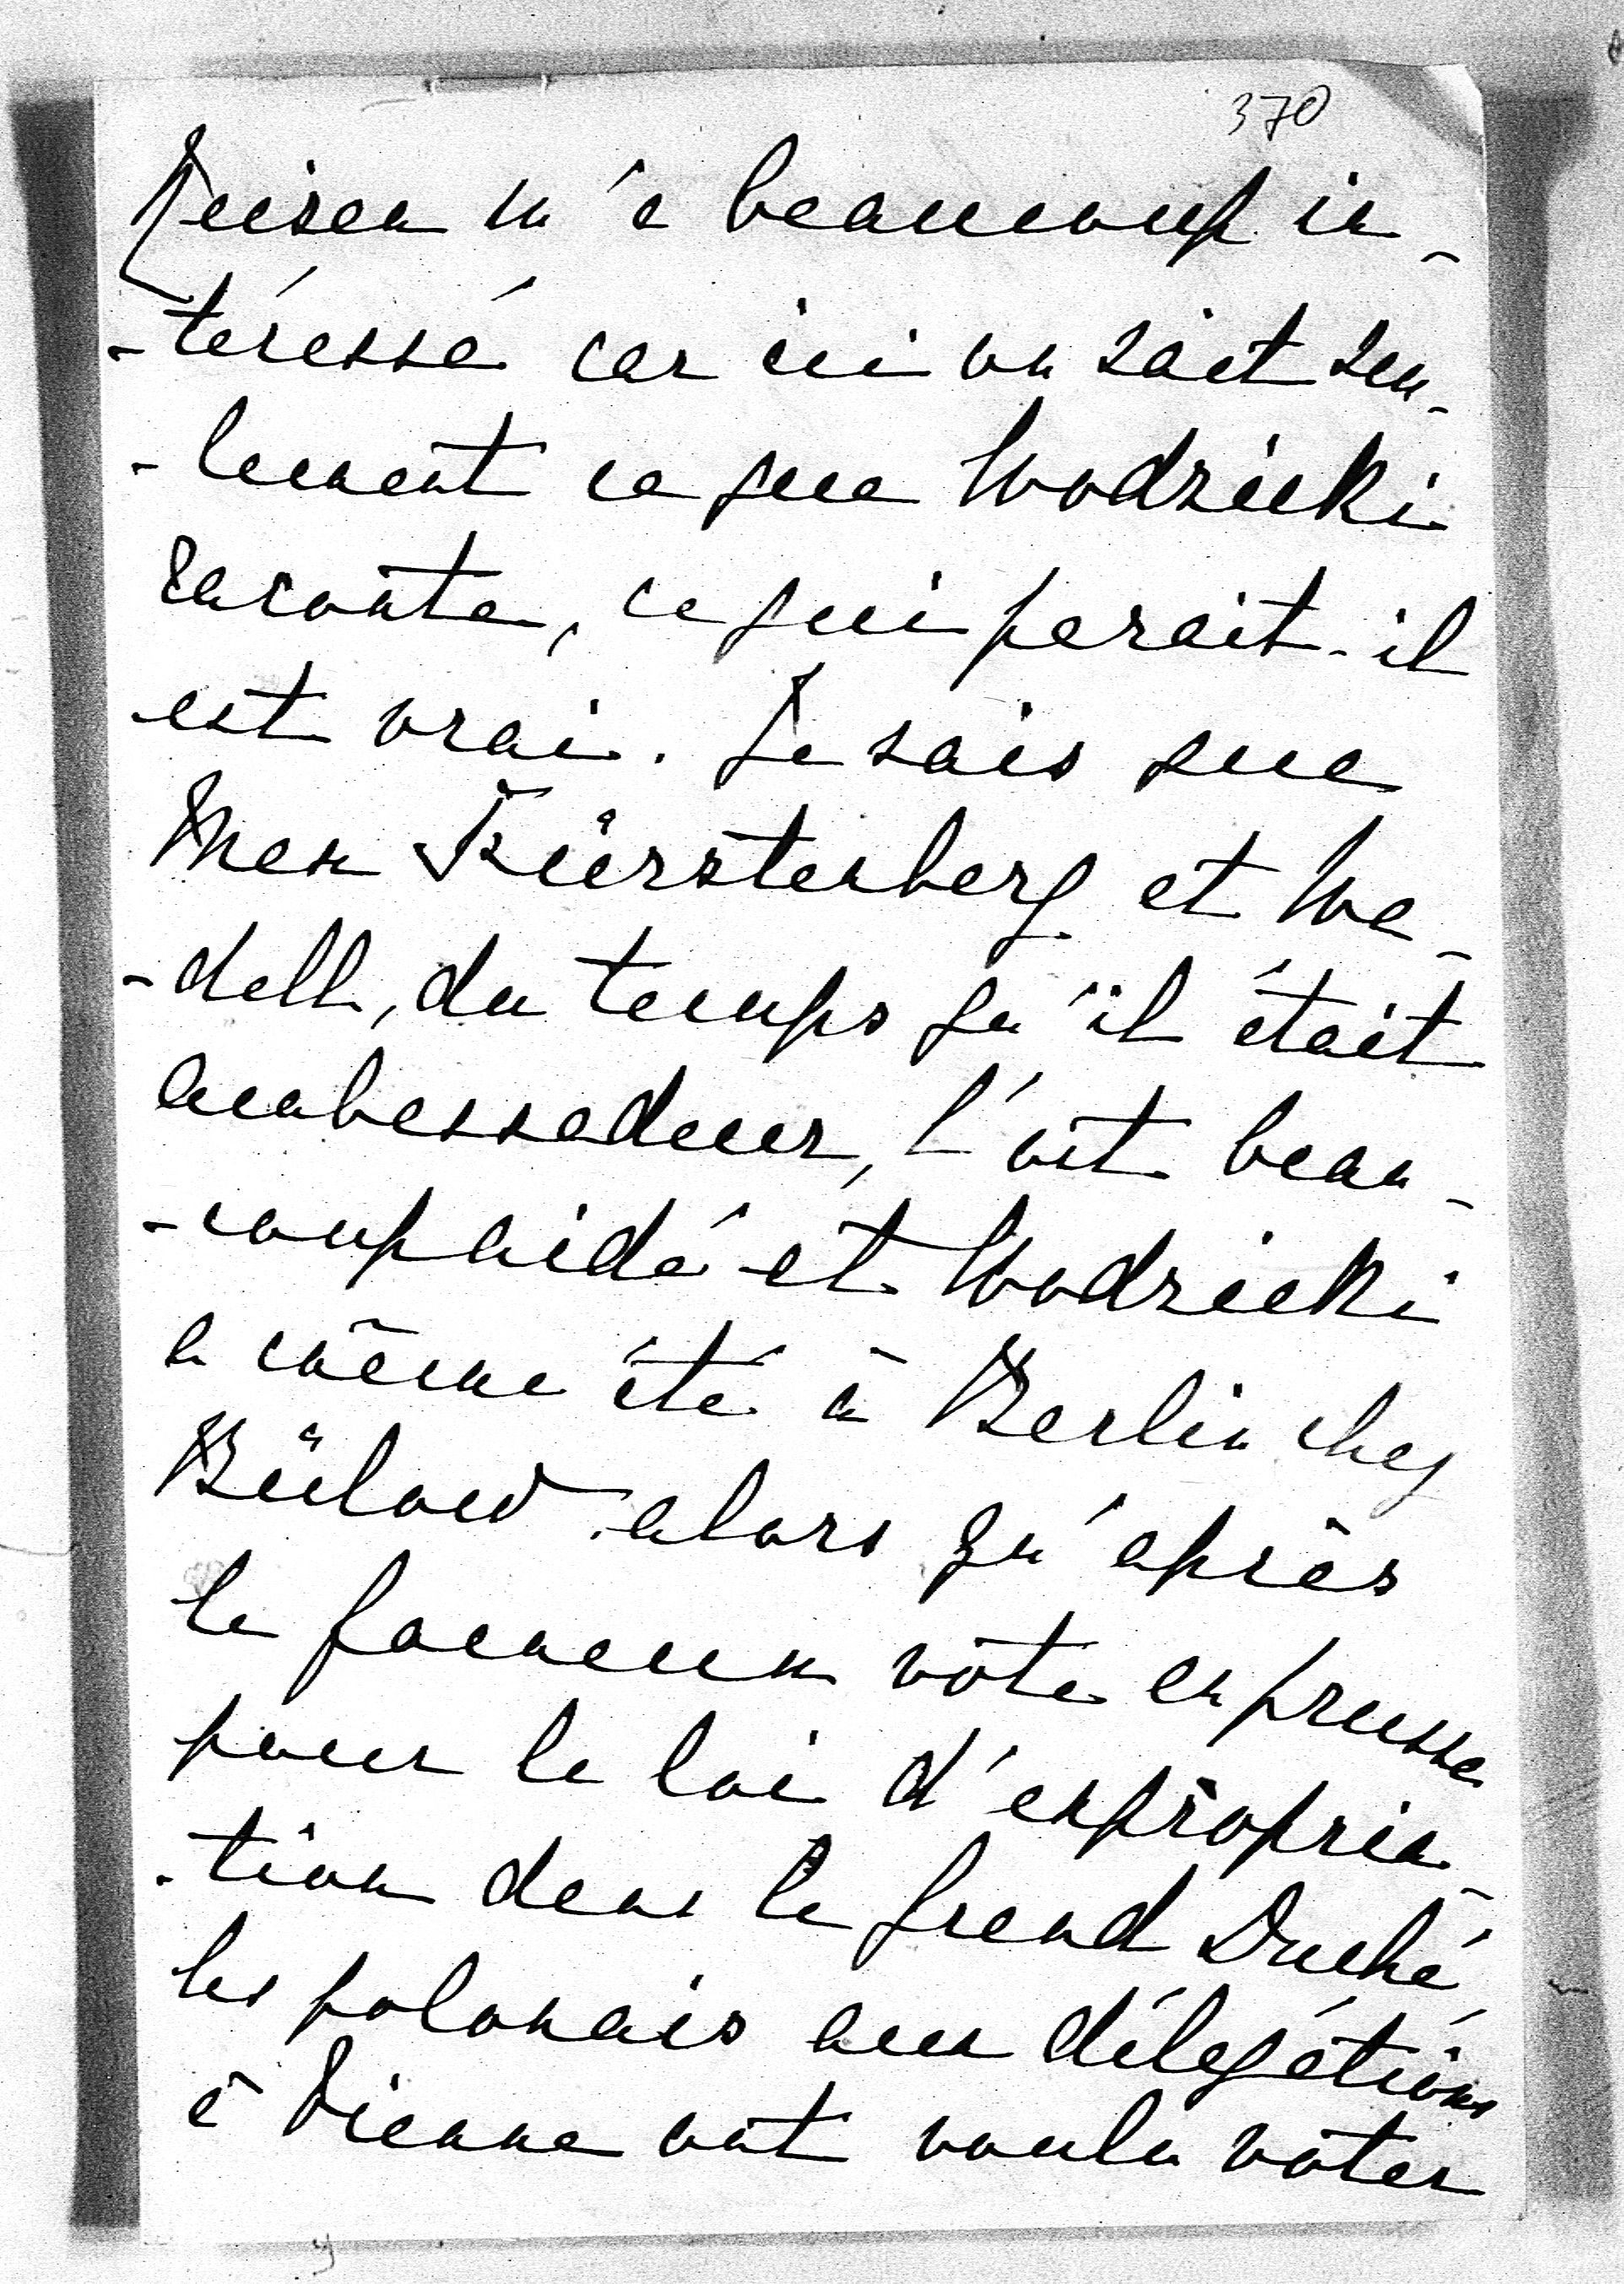 370
m'a beaucoup in-
-téressé car ici on sait seu-
-lement ce que Wodzicki
raconte, ce qui parait-il
est vrai. Je sais que
Max Fürstenberg et We-
-dell, du temps qu'il était
ambassadeur, l'ont beau-
-coup aidé et Wodzicki
a même été à Berlin chez
Bülow alors qu'après
le fameux vote en prusse
pour la loi d'expropria-
-tion dans le grand Duché,
les polonais aux délégations
à Vienne ont voulu voter